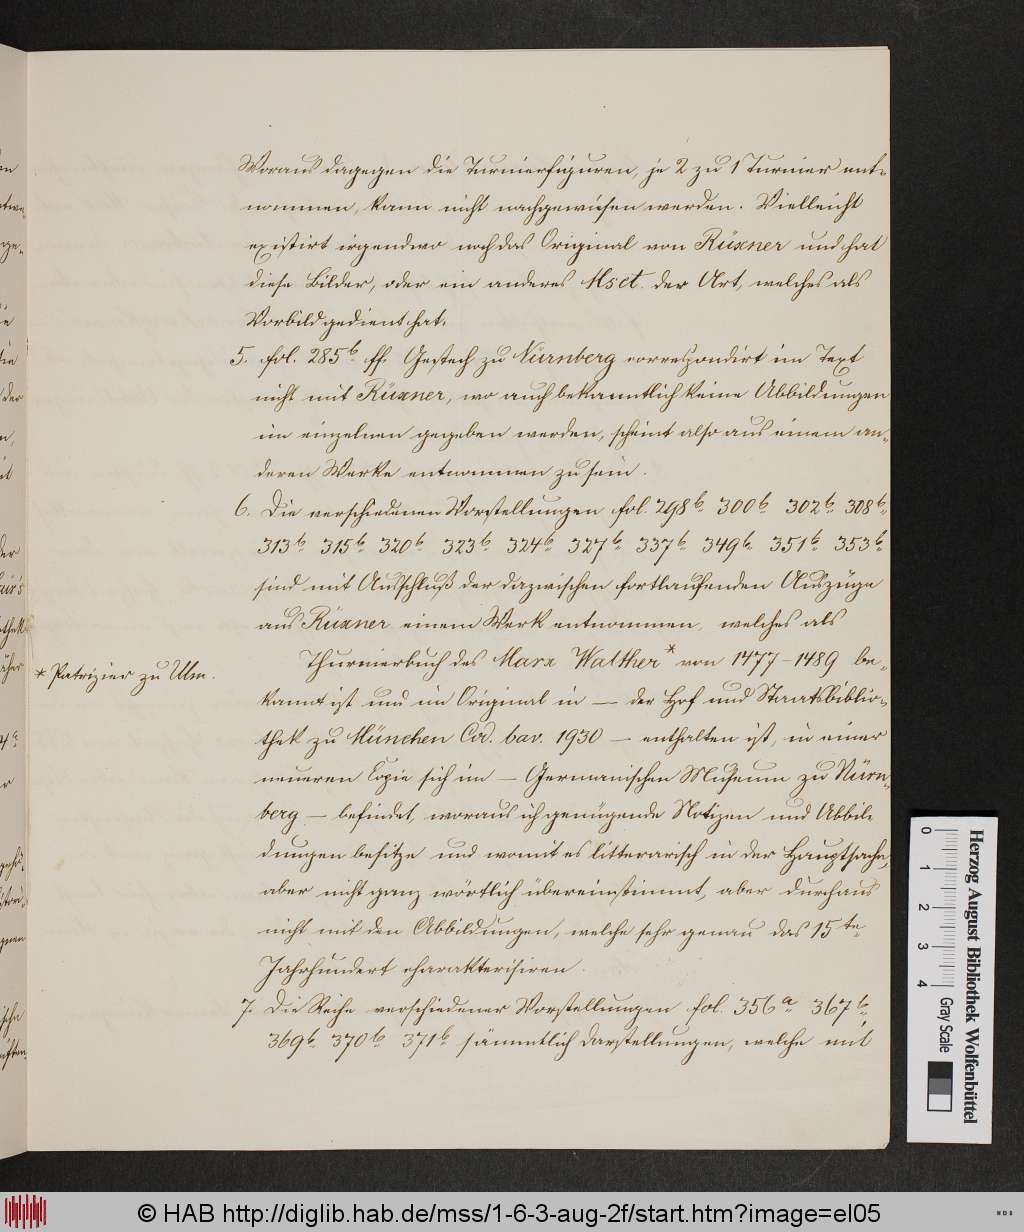 Woraus dagegen die Turnierfiguren, je 2 zu 1 Turnier ent-
nommen, kann nicht nachgewiesen werden. Vielleicht
existirt irgendwo noch das Original von Rüxner und hat
diese Bilder, oder ein anderes Msct. der Art, welches als
Vorbild gedient hat.
5. fol. 285b ff. Gestech zu Nürnberg correspondirt im Text
nicht mit Rüxner, wo auch bekanntlich keine Abbildungen
im einzelnen gegeben werden, scheint also aus einem an-
deren Werke entnommen zu sein.
6. Die verschiedenen Vorstellungen fol. 298b 300b 302b 308b
313b 315b 320b 323b 324b 327b 337b 349b 351b 353b
sind mit Ausschluß der dazwischen fortlaufenden Auszüge
aus Rüxner einem Werk entnommen, welches als
Thurnierbuch des Marx Walther* von 1477–1489 be-
* Patrizier zu Ulm.
kannt ist und im Original in — der Hof und Staatsbiblio-
thek zu München Cod. bav. 1930 — enthalten ist, in einer
neueren Copie sich im — Germanischen Museum zu Nürn-
berg — befindet, woraus ich genügende Notizen und Abbil-
dungen besitze und womit es litterarisch in der Hauptsache,
aber nicht ganz wörtlich übereinstimmt, aber durchaus
nicht mit den Abbildungen, welche sehr genau das 15te
Jahrhundert charakterisiren.
7. Die Reihe verschiedener Vorstellungen fol. 356a 367b
369b 370b 371b sämmtlich Darstellungen, welche mit
Herzog August Bibliothek Wolfenbüttel
0 1 2 3 4 Gray Scale
© HAB http://diglib.hab.de/mss/1-6-3-aug-2f/start.htm?image=el05